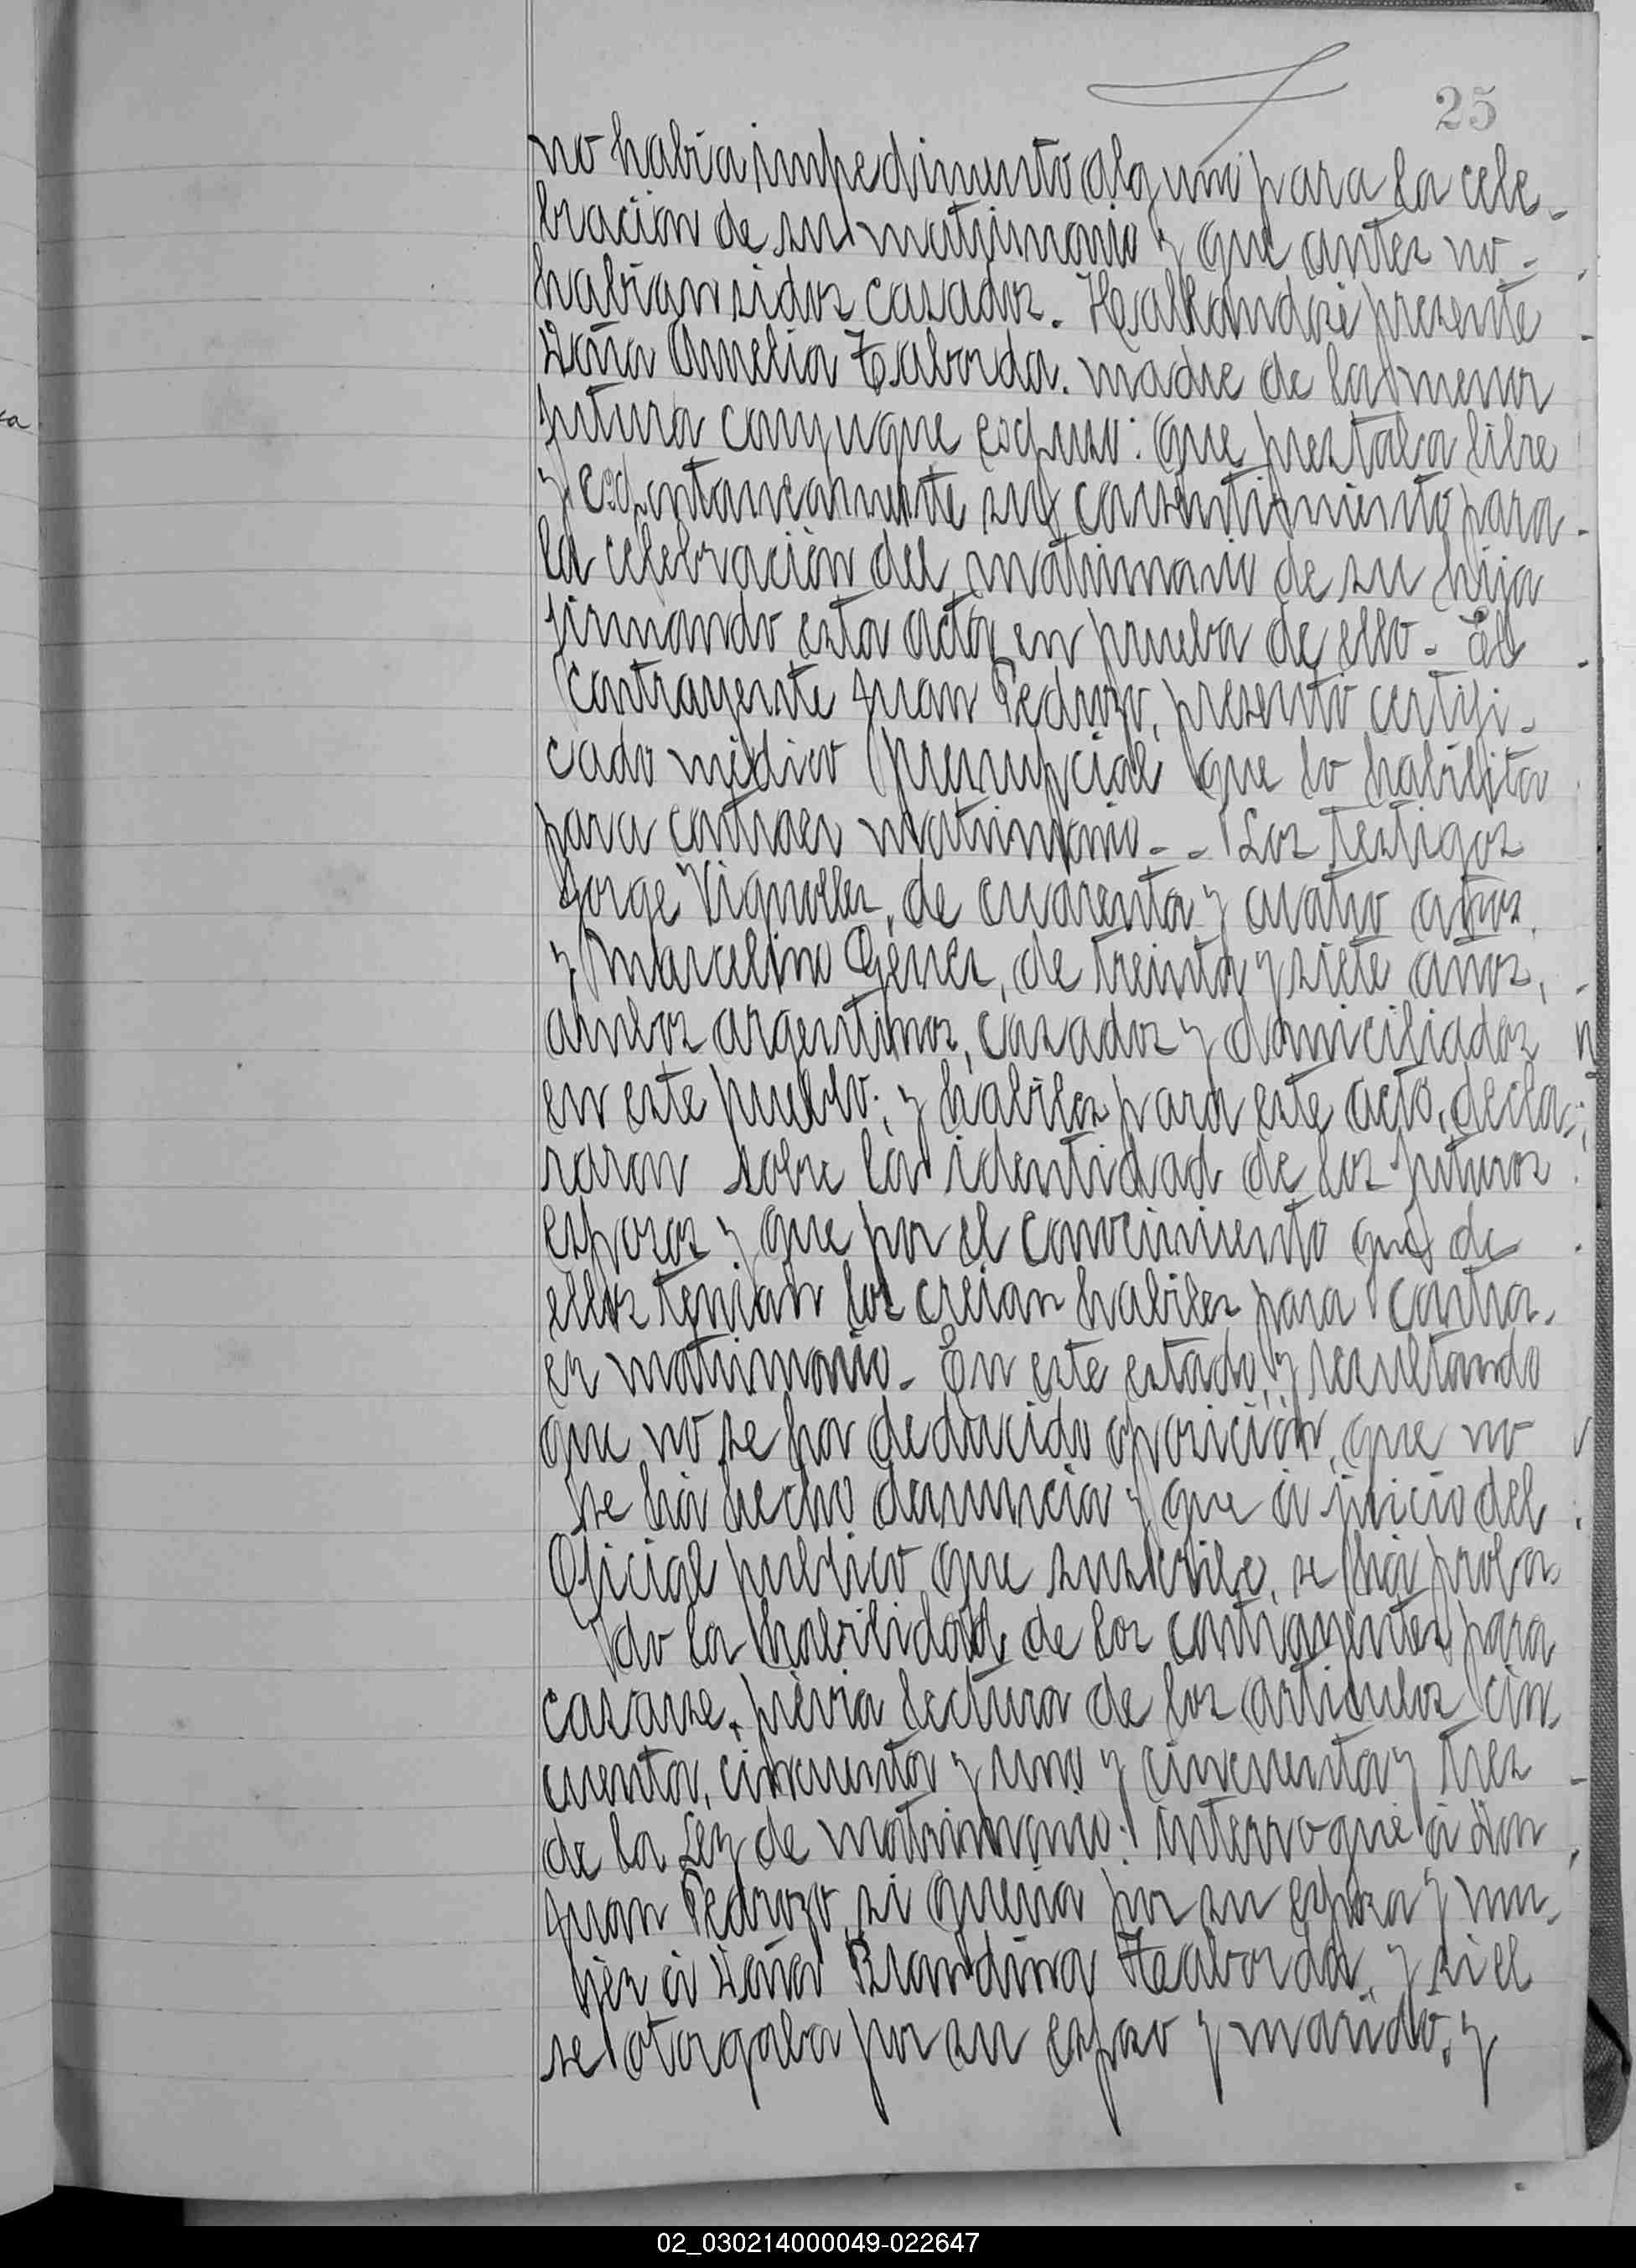 25
no habia impedimento alguno para la cele-
bración de su matrimonio y que antes no-
habian sidos casados. Hallandose presente
Doña Amelia Taborda. madre de la menor
futura conyugue expuso: que prestaba libre
y espontaneamente su consentimiento para
la celebración del matrimonio de su hija
firmando esta acta en prueba de ello. El
contrayente Juan Pedrozo, presentó certifi-
cado médico prenupcial que lo habilita
para contraer matrimonio. - Los testigos
Jorge Vignolles, de cuarenta y cuatro años,
y Marcelino Génez, de treinta y siete años,
ambos argentinos, casados y domiciliados
en este pueblo; y habiles para este acto, decla-
raron sobre la identidad de los futuros
esposos y que por el conocimiento que de
ellos tenian los creian habiles para contra-
er matrimonio. En este estado, y resultando
que no se ha deducido oposición, que no
se há hecho denuncia y que á juicio del
Oficial publico que suscribe, se há proba-
do la habilidad de los contrayentes para
casarse, prévia lectura de los articulos cin-
cuenta, cincuenta y uno y cincuenta y tres
de la Ley de matrimonio: interrogué á Don
Juan Pedrozo si queria por su esposa y mu-
jer á Doña Blandina Taborda, y si el
se otorgaba por su esposo y marido, y
02_030214000049-022647